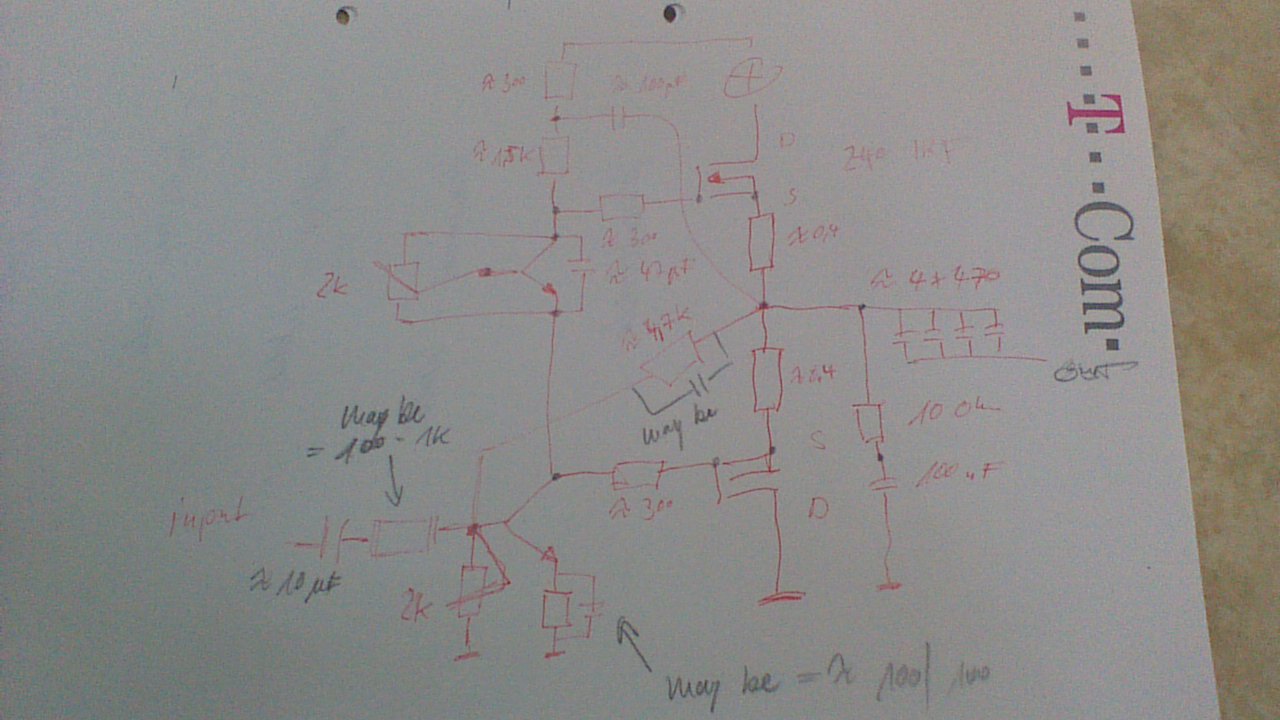 ≈ 300
≈ 100µF
D
≈ 1,5K
240 IRF
S
≈ 300
≈ 0,4
2k
≈ 47µF
≈ 4 x 470
≈ 4,7K
out
≈ 0,4
may be
= 100 - 1K
may be
10 Ohm
S
input
≈ 300
D
100nF
≈ 10 µF
2k
may be = ≈ 100 | 100
T Com